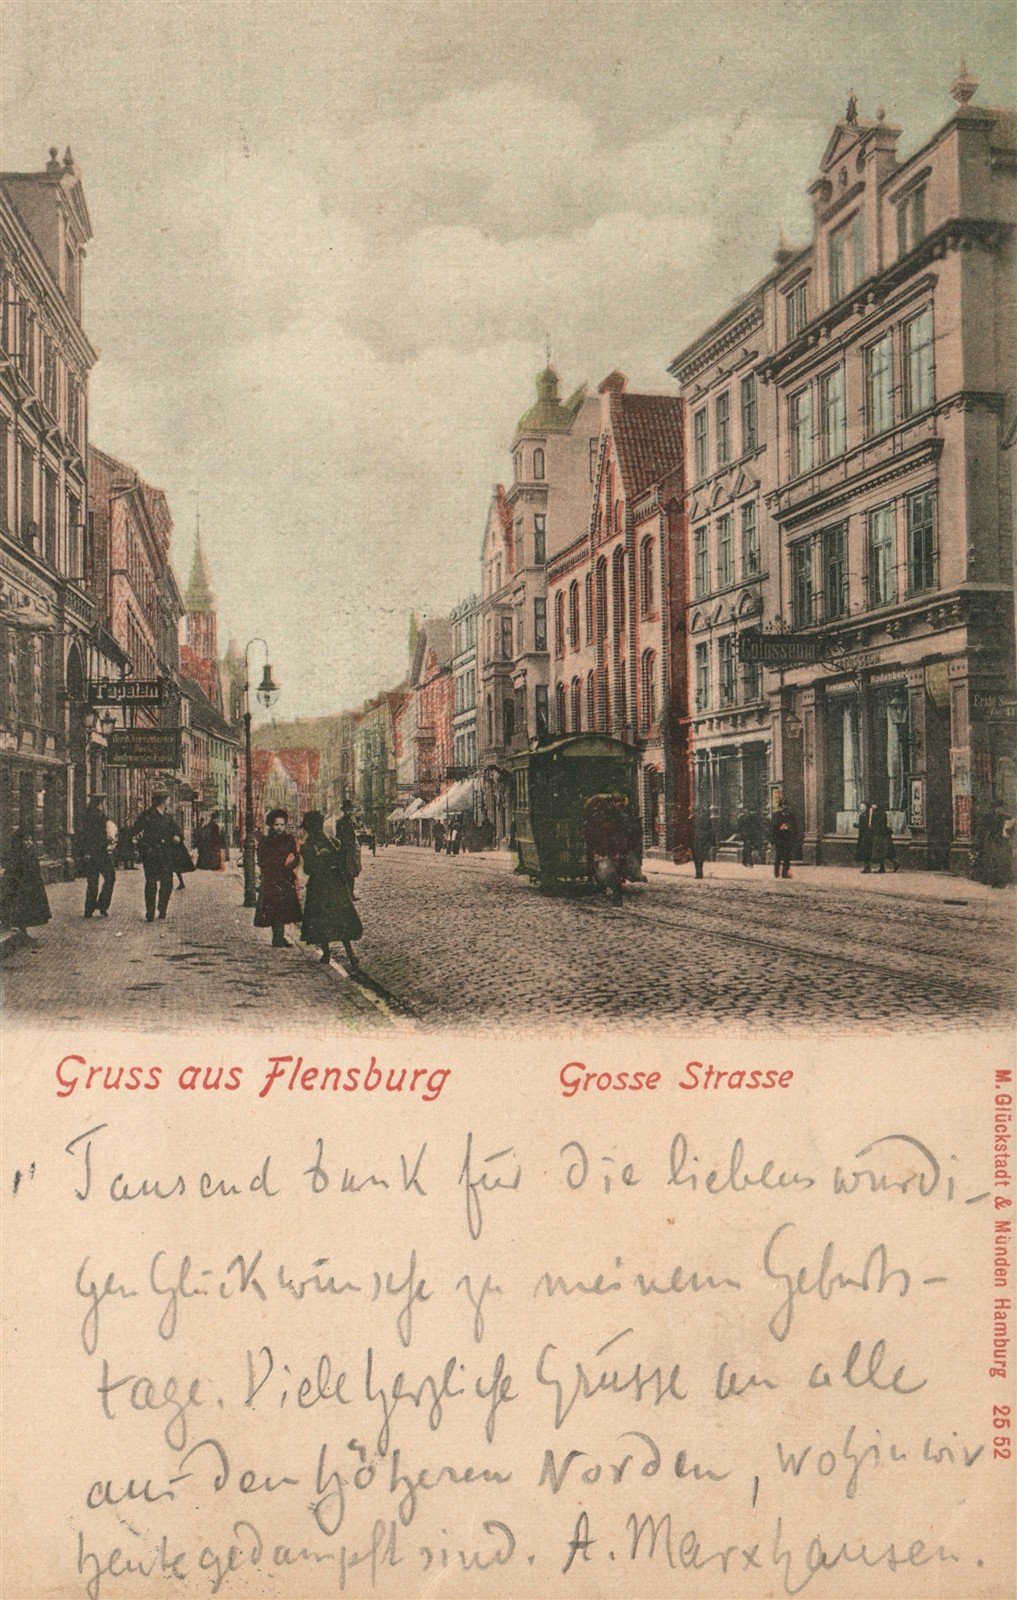 Tapeten
Colosseum
COLOSSEUM
Gruss aus Flensburg
Grosse Strasse
Tausend Dank für die liebenswürdi-
gen Glückwünsche zu meinem Geburts-
tage. Viele herzliche Grüsse an alle
aus den höheren Norden, wohin wir
heute gedampft sind. A. Marxhausen.
M. Glückstadt & Münden Hamburg 2552